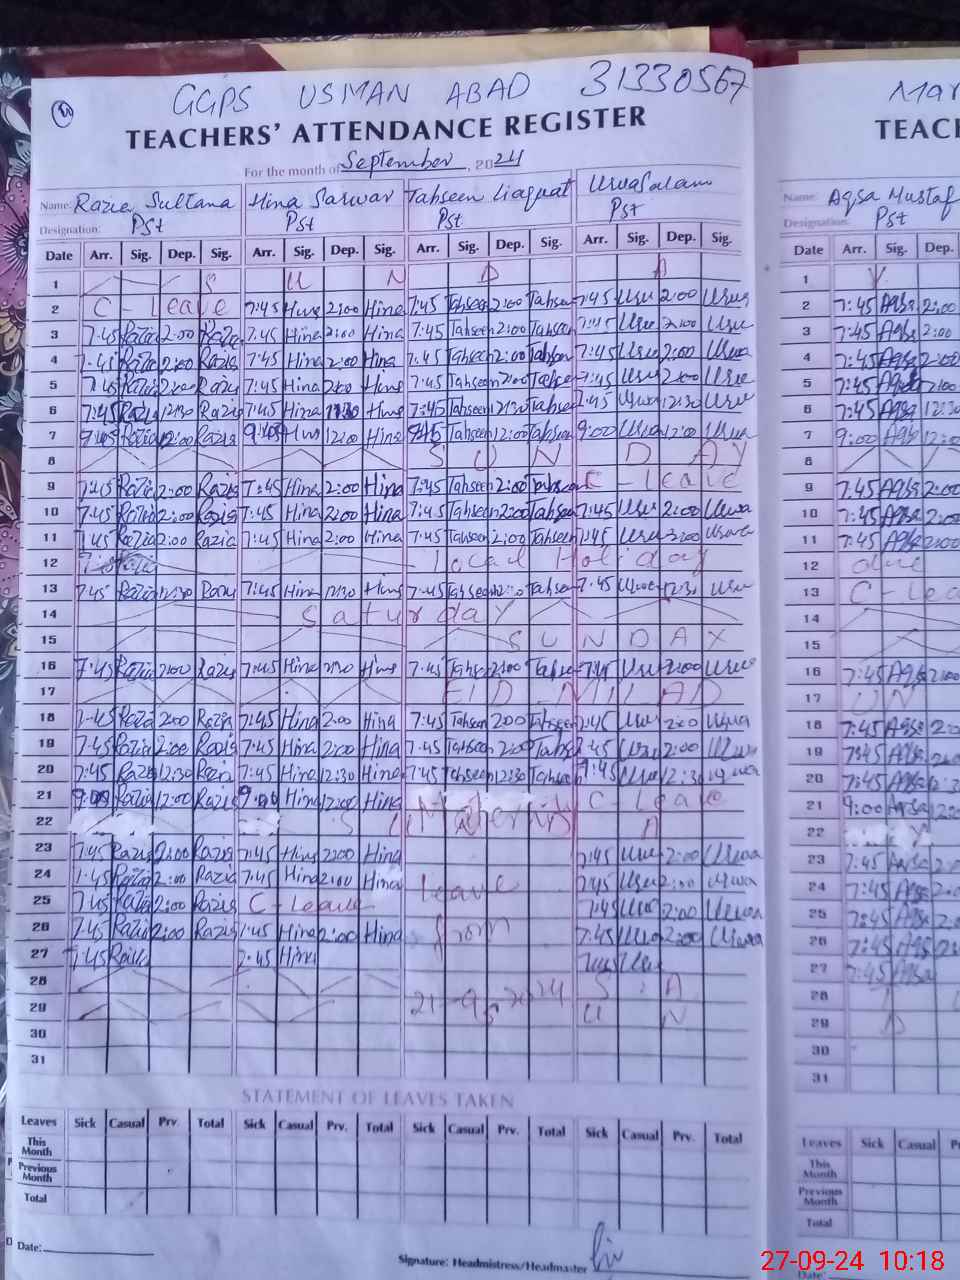 GGPS USMAN ABAD 31330567
TEACHERS' ATTENDANCE REGISTER
For the month of September, 2024
Name: Razia Sultana Hina Sarwar Tahseen Liaquat Urwa Salam
Designation: Pst Pst Pst Pst
Date Arr. Sig. Dep. Sig. Arr. Sig. Dep. Sig. Arr. Sig. Dep. Sig. Arr. Sig. Dep. Sig.
1 S U N D A
2 C - Leave 7:45 Hina 2:00 Hina 7:45 Tahseen 2:00 Tahseen 7:45 Urwa 2:00 Urwa
3 7:45 Razia 2:00 Razia 7:45 Hina 2:00 Hina 7:45 Tahseen 2:00 Tahseen 7:45 Urwa 2:00 Urwa
4 7:45 Razia 2:00 Razia 7:45 Hina 2:00 Hina 7:45 Tahseen 2:00 Tahseen 7:45 Urwa 2:00 Urwa
5 7:45 Razia 2:00 Razia 7:45 Hina 2:00 Hina 7:45 Tahseen 2:00 Tahseen 7:45 Urwa 2:00 Urwa
6 7:45 Razia 12:30 Razia 7:45 Hina Hina 7:45 Tahseen 12:30 Tahseen 7:45 Urwa 12:30 Urwa
7 Razia 12:00 Razia Hina 12:00 Hina Tahseen 12:00 Tahseen 9:00 Urwa 12:00 Urwa
8 S U N D A Y
9 7:45 Razia 2:00 Razia 7:45 Hina 2:00 Hina 7:45 Tahseen 2:00 Tahseen C - Leave
10 7:45 Razia 2:00 Razia 7:45 Hina 2:00 Hina 7:45 Tahseen 2:00 Tahseen 7:45 Urwa 2:00 Urwa
11 7:45 Razia 2:00 Razia 7:45 Hina 2:00 Hina 7:45 Tahseen 2:00 Tahseen 7:45 Urwa Urwa
12 Local Holiday
13 7:45 Razia 12:30 Razia 7:45 Hina 12:30 Hina 7:45 Tahseen Tahseen 7:45 Urwa 12:30 Urwa
14 Saturday
15 S U N D A Y
16 7:45 Razia 2:00 Razia 7:45 Hina 2:00 Hina 7:45 Tahseen 2:00 Tahseen 7:45 Urwa 2:00 Urwa
17 EID - MILAD
18 7:45 Razia 2:00 Razia 7:45 Hina 2:00 Hina 7:45 Tahseen 2:00 Tahseen 7:45 Urwa 2:00 Urwa
19 7:45 Razia 2:00 Razia 7:45 Hina 2:00 Hina 7:45 Tahseen 2:00 Tahseen 7:45 Urwa 2:00 Urwa
20 7:45 Razia 12:30 Razia 7:45 Hina 12:30 Hina 7:45 Tahseen 12:30 Tahseen 7:45 Urwa 12:30 Urwa
21 9:00 Razia 12:00 Razia 9:00 Hina 12:00 Hina C - Leave
22 S U Maternity A
23 7:45 Razia 2:00 Razia 7:45 Hina 2:00 Hina 7:45 Urwa 2:00 Urwa
24 7:45 Razia 2:00 Razia 7:45 Hina 2:00 Hina Leave 7:45 Urwa 2:00 Urwa
25 7:45 Razia 2:00 Razia C - Leave 7:45 Urwa 2:00 Urwa
26 7:45 Razia 2:00 Razia 7:45 Hina 2:00 Hina from 7:45 Urwa 2:00 Urwa
27 7:45 Razia 7:45 Hina 7:45 Urwa
28 21-9-2024 S A
29 U N
30
31
STATEMENT OF LEAVES TAKEN
Leaves Sick Casual Prv. Total Sick Casual Prv. Total Sick Casual Prv. Total Sick Casual Prv. Total
This Month
Previous Month
Total
Date:
Signature: Headmistress/Headmaster
Mar
TEAC
Name: Aqsa Mustaf
Designation: Pst
Date Arr. Sig. Dep.
1
2 7:45 Aqsa 2:00
3 7:45 Aqsa 2:00
4 7:45 Aqsa 2:00
5 7:45 Aqsa 2:00
6 7:45 Aqsa 12:30
7 9:00 Aqsa 12:00
8
9 7:45 Aqsa 2:00
10 7:45 Aqsa 2:00
11 7:45 Aqsa 2:00
12
13 C - Lea
14
15
16 7:45 Aqsa 2:00
17 UN
18 7:45 Aqsa 2:0
19 7:45 Aqsa
20 7:45 Aqsa
21 9:00 Aqsa
22 Y
23 7:45 Aqsa
24 7:45 Aqsa
25 7:45 Aqsa
26 7:45 Aqsa
27 7:45 Aqsa
28
29 D
30
31
Leaves Sick Casual P
This Month
Previous Month
Total
Date:
27-09-24 10:18